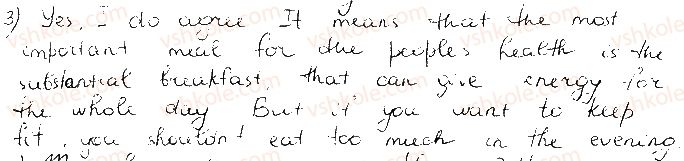 3) Yes, I do agree It means that the most
important meal for the people's health is the
substantial breakfast, that can give energy for
the whole day But if you want to keep
fit, you shouldn't eat too much in the evening.